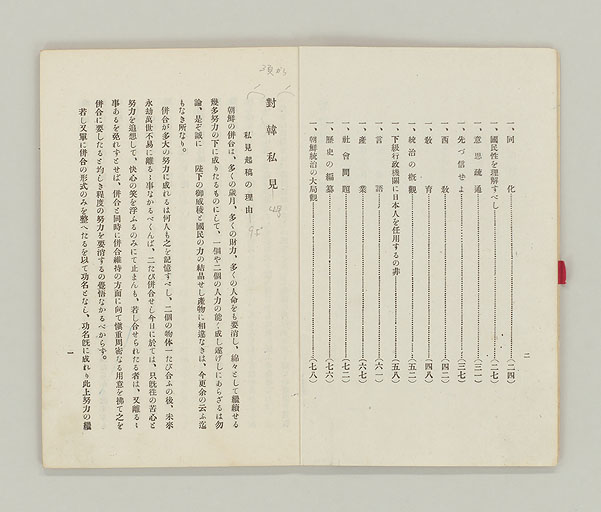 二
一、同化……(二四)
一、國民性を理解すべし……(二七)
一、意思疏通……(三二)
一、先づ信ぜよ……(三七)
一、酒敎……(四二)
一、敎育……(四八)
一、統治の槪觀……(五二)
一、下級行政機關に日本人を任用するの非……(五八)
一、言語……(六一)
一、產業……(六七)
一、社會問題……(七二)
一、歷史の編纂……(七六)
一、朝鮮統治の大局觀……(七八)
對韓私見
私見起稿の理由
朝鮮の併合は、多くの歲月、多くの財力、多くの人命をも要消し、綿々として繼續せる
幾多努力の下に成りたるものにして、一個や二個の人力の能く成し遂げしにあらざるは勿
論、是ぞ誠に 陛下の御威稜と國民の力の結晶せし產物に相違なきは、今更余の云ふ迄
もなき所なり。
併合が多大の努力に成れるは何人も之を記憶すべし、二個の物体一たび合ふの後、未來
永劫萬世不易に離るゝ事なかるべくんば、二たび併合せし今日に於ては、只旣往の苦心と
努力を追想して、快心の笑を浮ぶるのみにて止まんも、若し合せられたる者は、又離るゝ
事あるを免れずとせば、併合と同時に併合維持の方面に向て愼重周密なる用意を拂て之を
併合に要したると均しき程度の努力を要消するの覺悟なかるべからず。
若し又單に併合の形式のみを整へたるを以て功名となし、功名旣に成れり此上努力の繼
一